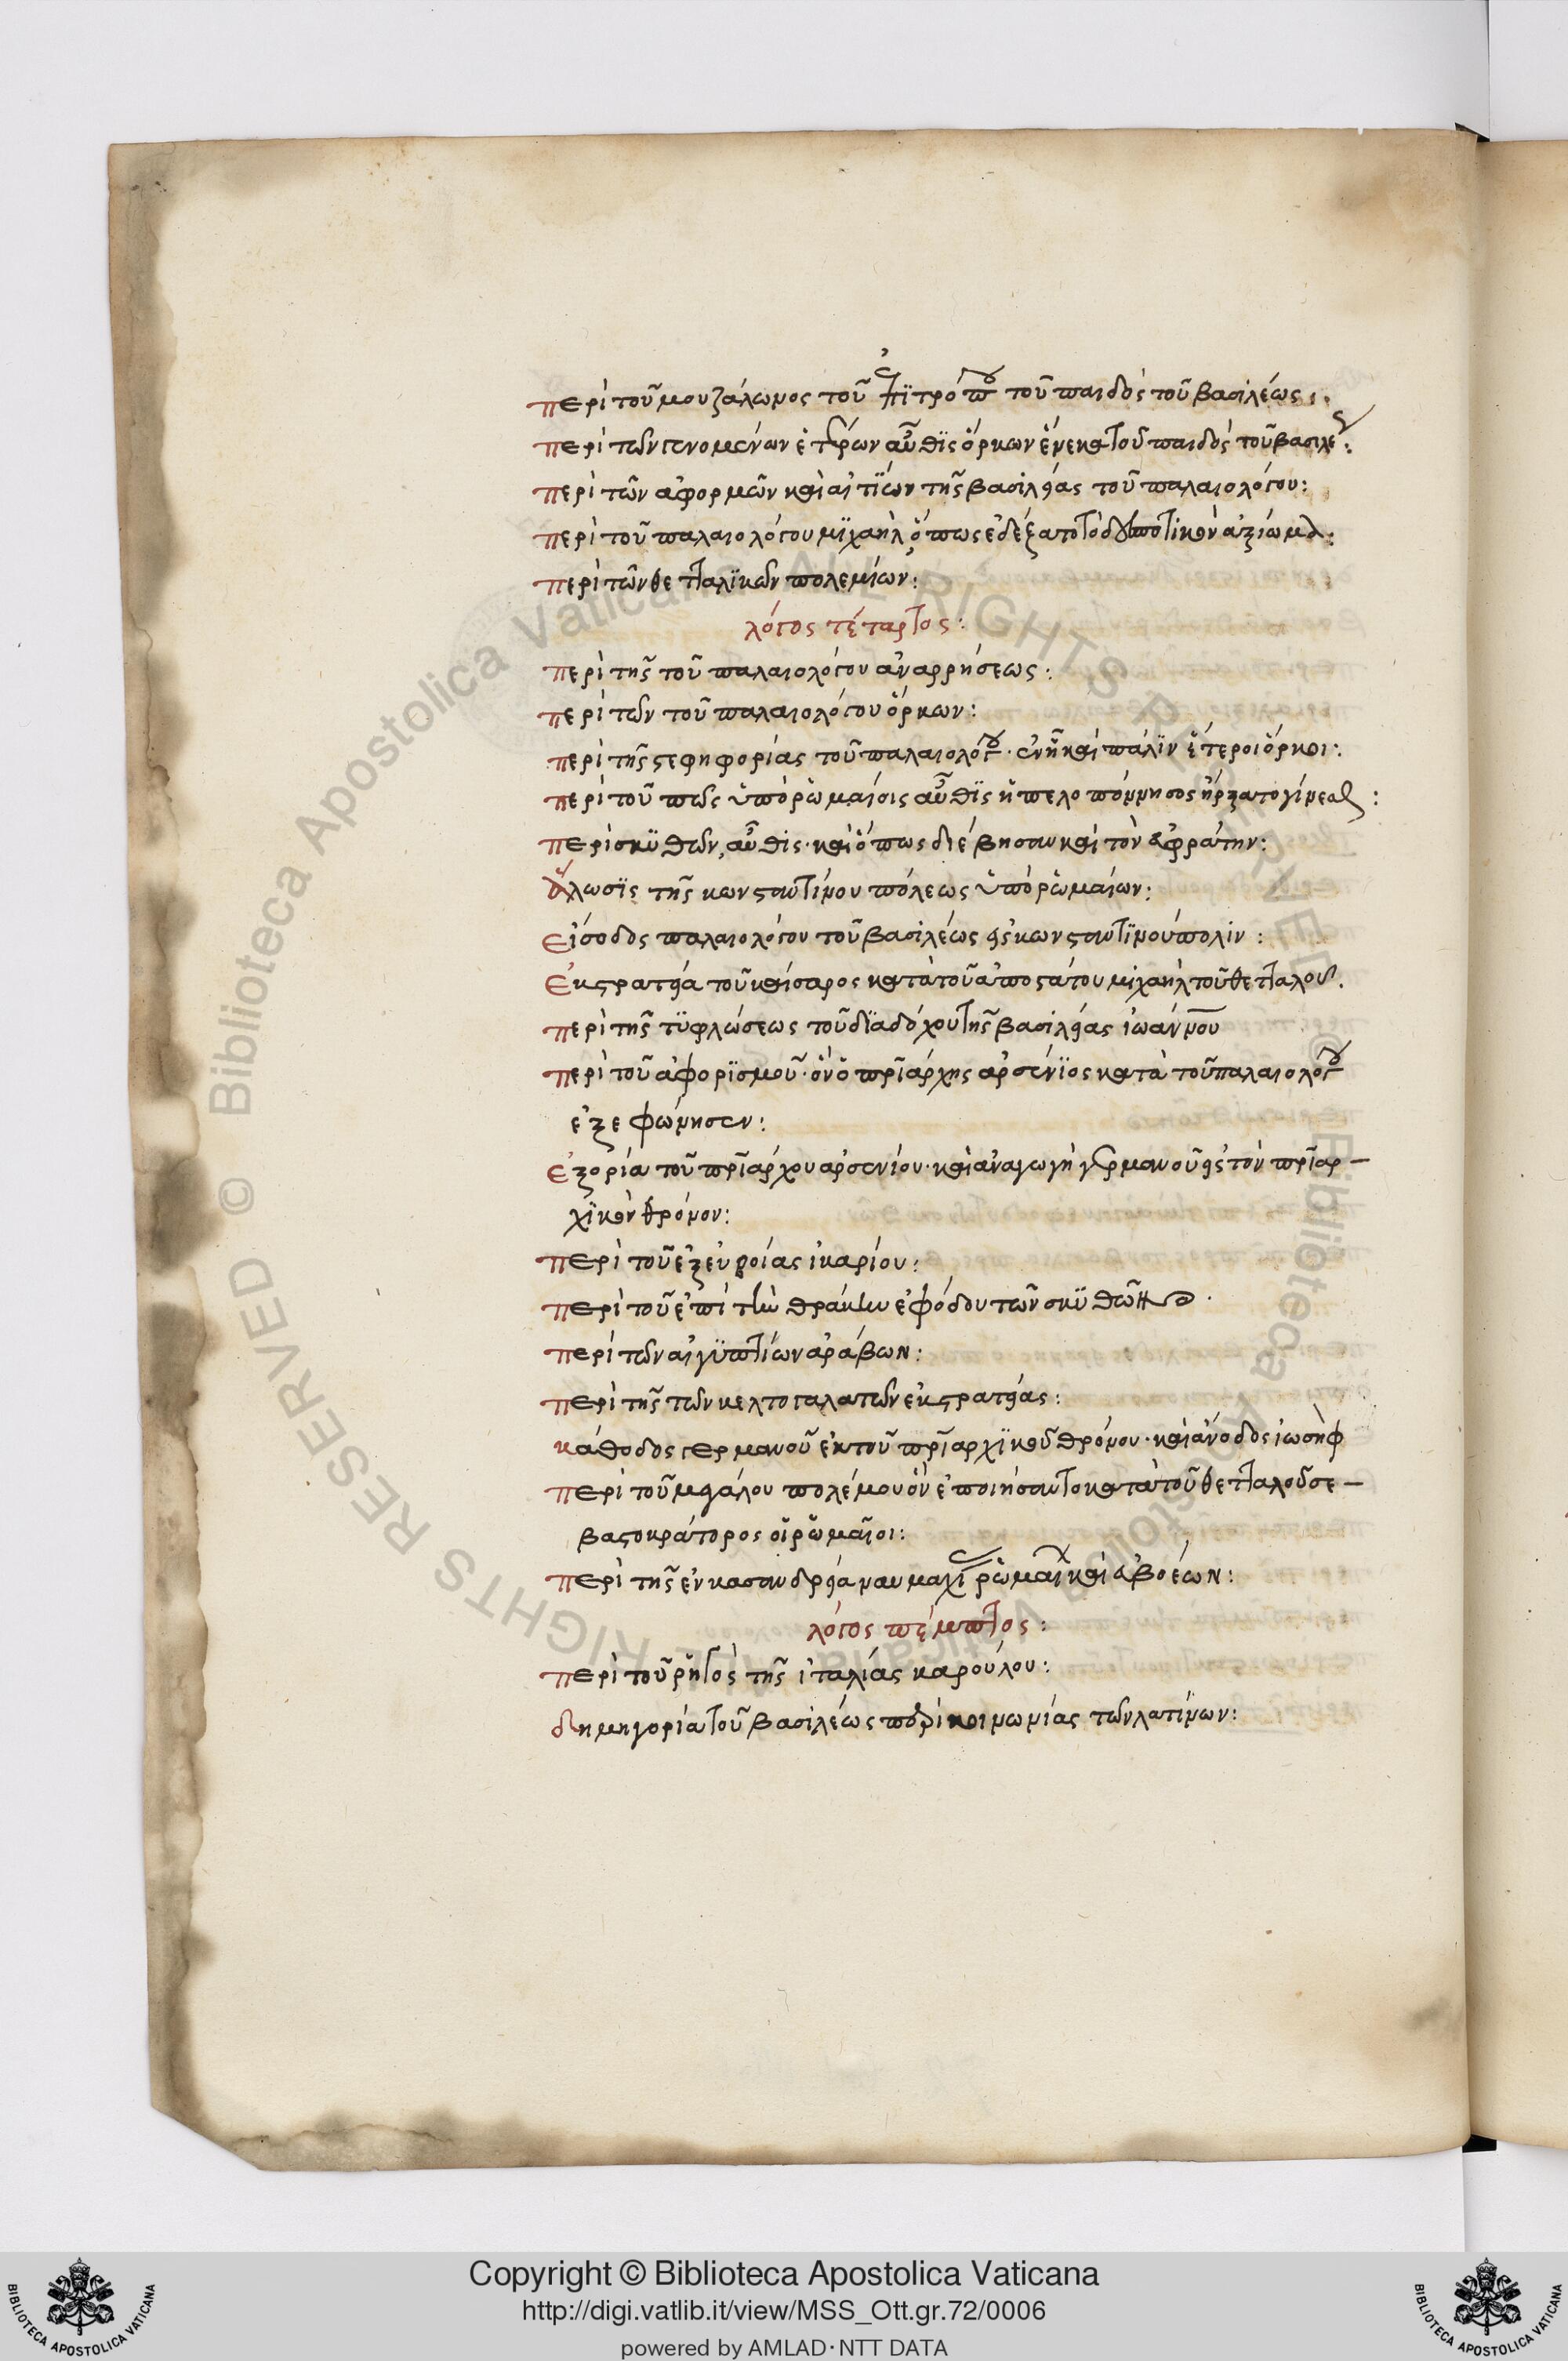 περὶ τοῦ μουζάλωνος τοῦ ἐπιτρόπου τοῦ παιδὸς τοῦ βασιλέως:
περὶ τῶν γενομένων ἑτέρων αὖθις ὅρκων ἕνεκα τοῦ παιδὸς τοῦ βασιλέως:
περὶ τῶν ἀφορμῶν καὶ αἰτιῶν τῆς βασιλείας τοῦ παλαιολόγου:
περὶ τοῦ παλαιολόγου μιχαὴλ, ὅπως ἐδέξατο τὸ δεσποτικὸν ἀξίωμα:
περὶ τῶν θετταλϊκῶν πολεμίων:
λόγος τέταρτος:
περὶ τῆς τοῦ παλαιολόγου ἀναρρήσεως:
περὶ τῶν τοῦ παλαιολόγου ὅρκων:
περὶ τῆς στεφηφορίας τοῦ παλαιολόγου· ἐν ἧ καὶ πάλϊν ἕτεροι ὅρκοι:
περὶ τοῦ πῶς ὑπὸ ῥωμαίοις αὖθϊς ἡ πελοπόννησος ἤρξατο γίνεσθαι:
περὶ σκϋθῶν, αὖθις· καὶ ὅπως διέβησαν καὶ τὸν εὐφράτην:
ἅλωσϊς τῆς κωνσταντίνου πόλεως ὑπὸ ῥωμαίων:
εἴσοδος παλαιολόγου τοῦ βασιλέως εἰς κωνσταντϊνούπολιν:
ἐκστρατεία τοῦ καίσαρος κατὰ τοῦ ἀποστάτου μιχαὴλ τοῦ θετταλοῦ.
περὶ τῆς τϋφλώσεως τοῦ δϊαδόχου τῆς βασιλείας ἰωάννου
περὶ τοῦ ἀφορϊσμοῦ· ὃν ὁ πρϊάρχης ἀρσένϊος κατὰ τοῦ παλαιολόγου
ἐξεφώνησεν:
ἐξορία τοῦ πρϊάρχου ἀρσενίου· καὶ ἀναγωγὴ γερμανοῦ εἰς τὸν πρϊαρ-
χϊκὸν θρόνον:
περὶ τοῦ ἐξ εὐβοίας ἰκαρίου:
περὶ τοῦ ἐπὶ τὴν θράκην ἐφόδου τῶν σκϋθῶν
περὶ τῶν αἰγϋπτίων ἀράβων:
περὶ τῆς τῶν κελτογαλατῶν ἐκστρατείας:
κάθοδος γερμανοῦ ἐκ τοῦ πρϊαρχϊκοῦ θρόνου· καὶ ἄνοδος ἰωσὴφ
περὶ τοῦ μεγάλου πολέμου ὃν ἐποιήσαντο κατὰ τοῦ θετταλοῦ σε-
βαστοκράτορος οἱ ῥωμαῖοι:
περὶ τῆς ἐν κασανδρεία ναυμαχίας ῥωμαίων καὶ εὐβοέων:
λόγος πέμπτος:
περὶ τοῦ ῥηγὸς τῆς ἰταλίας καρούλου:
δημηγορία τοῦ βασιλέως περὶ κοινωνίας τῶν λατίνων:
Copyright © Biblioteca Apostolica Vaticana
http://digi.vatlib.it/view/MSS_Ott.gr.72/0006
powered by AMLAD·NTT DATA
BIBLIOTECA APOSTOLICA VATICANA
BIBLIOTECA APOSTOLICA VATICANA
Biblioteca Apostolica Vaticana ALL RIGHTS RESERVED © Biblioteca Apostolica Vaticana ALL RIGHTS RESERVED ©